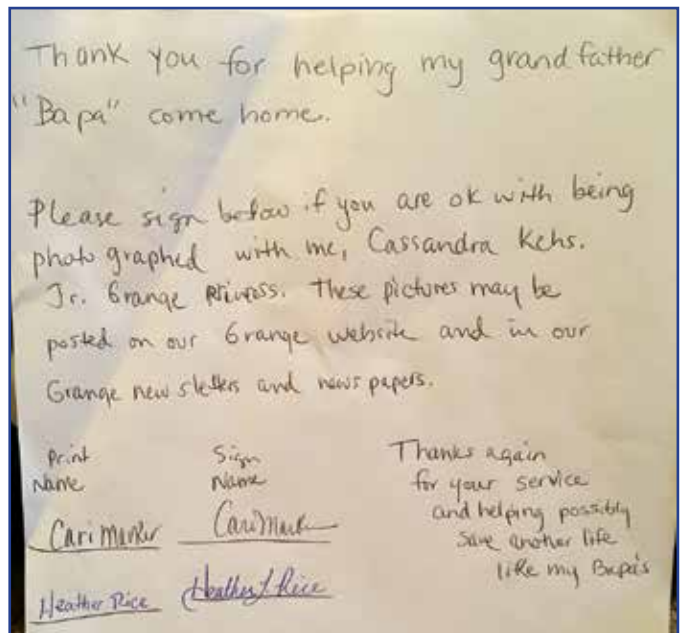 Thank you for helping my grandfather
"Bapa" come home.
Please sign below if you are ok with being
photographed with me, Cassandra Kehs.
Jr. Grange Princess. These pictures may be
posted on our Grange website and in our
Grange newsletters and news papers.
Print Name
Sign Name
Cari Marker
Cari Marker
Heather Rice
Heather L Rice
Thanks again
for your service
and helping possibly
save another life
like my Bapa's